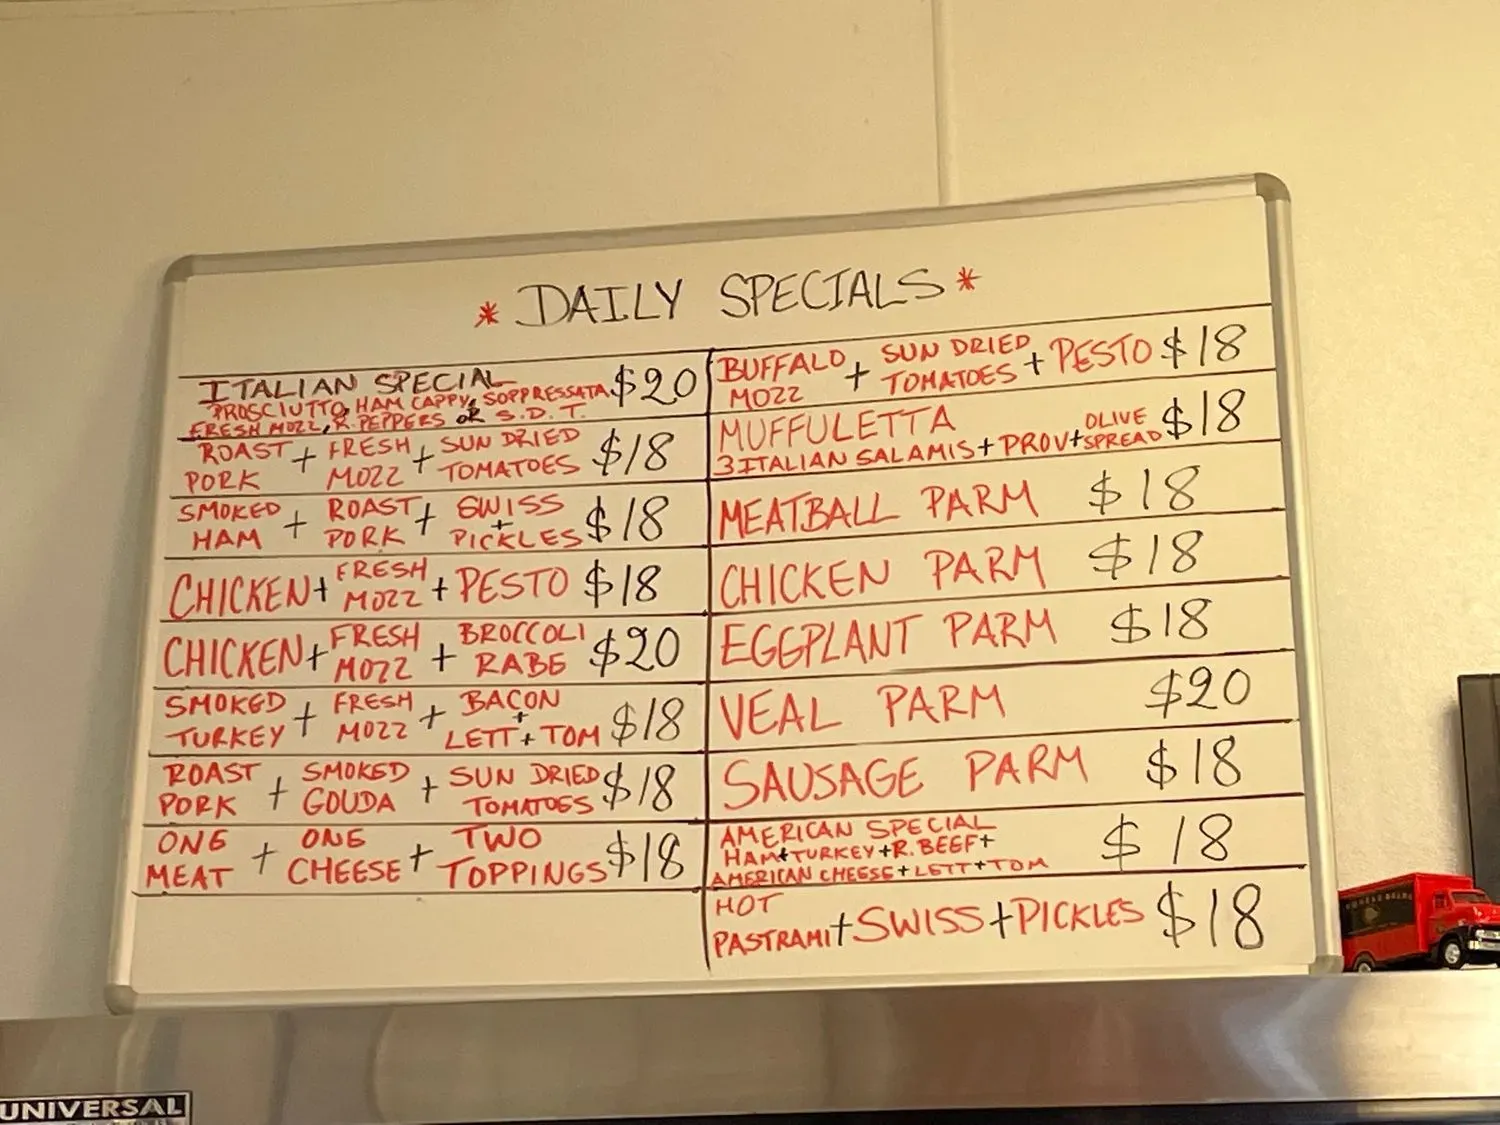 * DAILY SPECIALS *
ITALIAN SPECIAL $20
PROSCIUTTO, HAM CAPPY, SOPPRESSATA
FRESH MOZZ, R. PEPPERS OR S.D.T.
ROAST PORK + FRESH MOZZ + SUN DRIED TOMATOES $18
SMOKED HAM + ROAST PORK + SWISS + PICKLES $18
CHICKEN + FRESH MOZZ + PESTO $18
CHICKEN + FRESH MOZZ + BROCCOLI RABE $20
SMOKED TURKEY + FRESH MOZZ + BACON + LETT + TOM $18
ROAST PORK + SMOKED GOUDA + SUN DRIED TOMATOES $18
ONE MEAT + ONE CHEESE + TWO TOPPINGS $18
BUFFALO MOZZ + SUN DRIED TOMATOES + PESTO $18
MUFFULETTA $18
3 ITALIAN SALAMIS + PROV + OLIVE SPREAD
MEATBALL PARM $18
CHICKEN PARM $18
EGGPLANT PARM $18
VEAL PARM $20
SAUSAGE PARM $18
AMERICAN SPECIAL $18
HAM + TURKEY + R. BEEF +
AMERICAN CHEESE + LETT + TOM
HOT PASTRAMI + SWISS + PICKLES $18
UNIVERSAL